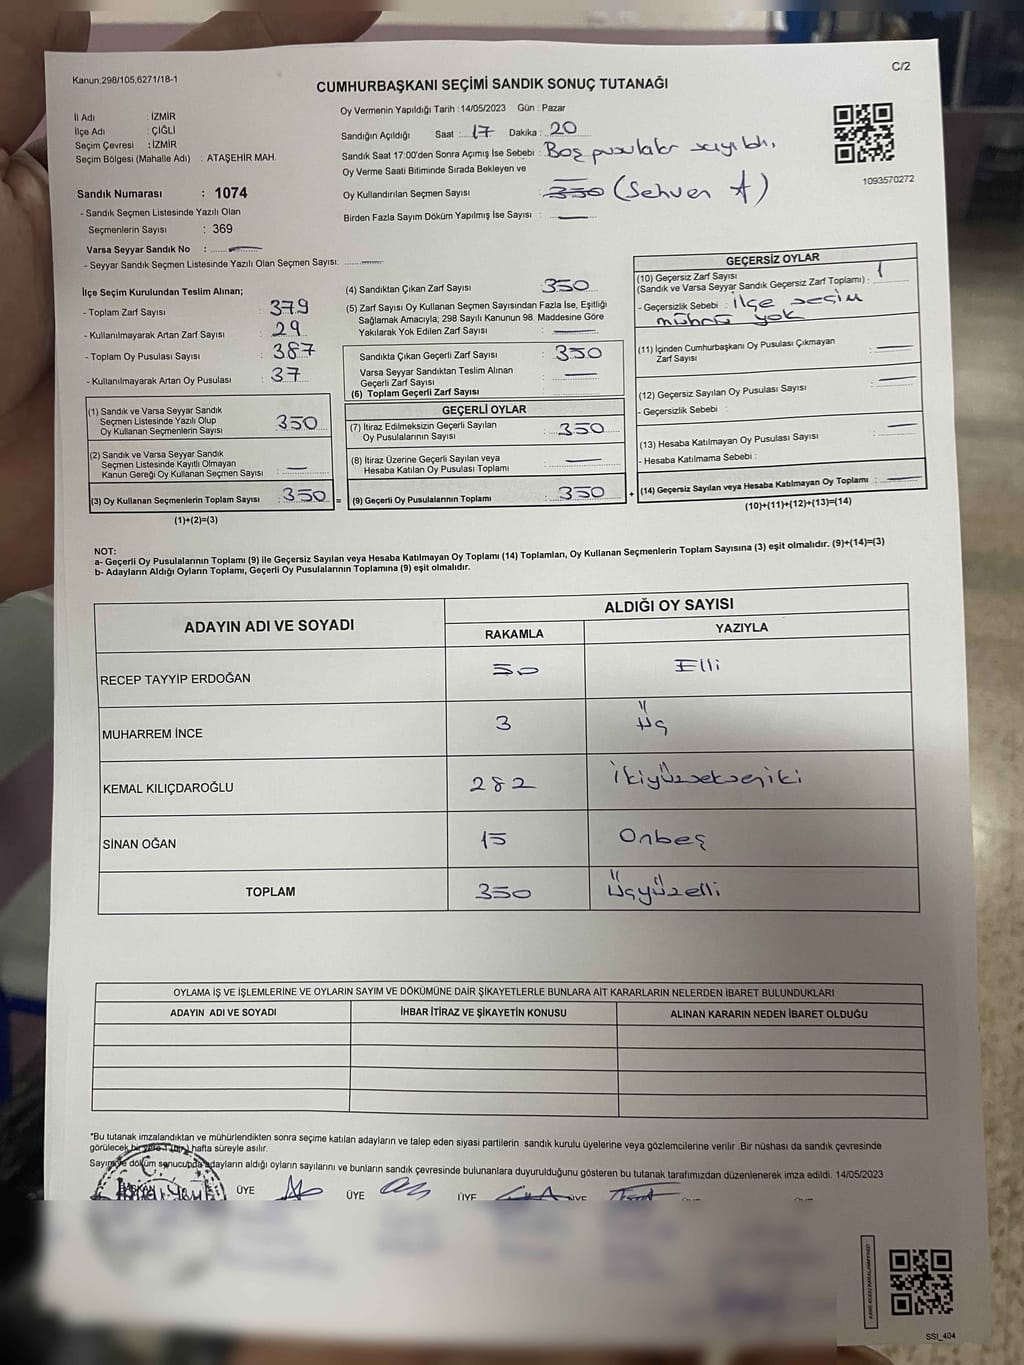 Kanun,298/105,6271/18-1
C/2
CUMHURBAŞKANI SEÇİMİ SANDIK SONUÇ TUTANAĞI
İl Adı : İZMİR
İlçe Adı : ÇİĞLİ
Seçim Çevresi : İZMİR
Seçim Bölgesi (Mahalle Adı) : ATAŞEHİR MAH.
Sandık Numarası : 1074
- Sandık Seçmen Listesinde Yazılı Olan
Seçmenlerin Sayısı : 369
Varsa Seyyar Sandık No : —
- Seyyar Sandık Seçmen Listesinde Yazılı Olan Seçmen Sayısı: —
Oy Vermenin Yapıldığı Tarih : 14/05/2023 Gün : Pazar
Sandığın Açıldığı Saat : 17 Dakika : 20
Sandık Saat 17:00'den Sonra Açımış İse Sebebi : Boş pusulalar sayıldı.
Oy Verme Saati Bitiminde Sırada Bekleyen ve
Oy Kullandırılan Seçmen Sayısı : 350 (Sehven
Birden Fazla Sayım Döküm Yapılmış İse Sayısı : —
1093570272
İlçe Seçim Kurulundan Teslim Alınan;
- Toplam Zarf Sayısı : 379
- Kullanılmayarak Artan Zarf Sayısı : 29
- Toplam Oy Pusulası Sayısı : 387
- Kullanılmayarak Artan Oy Pusulası : 37
(1) Sandık ve Varsa Seyyar Sandık
Seçmen Listesinde Yazılı Olup
Oy Kullanan Seçmenlerin Sayısı : 350
(2) Sandık ve Varsa Seyyar Sandık
Seçmen Listesinde Kayıtlı Olmayan
Kanun Gereği Oy Kullanan Seçmen Sayısı : —
(3) Oy Kullanan Seçmenlerin Toplam Sayısı : 350 =
(1)+(2)=(3)
(4) Sandıktan Çıkan Zarf Sayısı : 350
(5) Zarf Sayısı Oy Kullanan Seçmen Sayısından Fazla İse, Eşitliği
Sağlamak Amacıyla, 298 Sayılı Kanunun 98. Maddesine Göre
Yakılarak Yok Edilen Zarf Sayısı : —
Sandıkta Çıkan Geçerli Zarf Sayısı : 350
Varsa Seyyar Sandıktan Teslim Alınan
Geçerli Zarf Sayısı : —
(6) Toplam Geçerli Zarf Sayısı
GEÇERLİ OYLAR
(7) İtiraz Edilmeksizin Geçerli Sayılan
Oy Pusulalarının Sayısı : 350
(8) İtiraz Üzerine Geçerli Sayılan veya
Hesaba Katılan Oy Pusulası Toplamı : —
(9) Geçerli Oy Pusulalarının Toplamı : 350 +
GEÇERSİZ OYLAR
(10) Geçersiz Zarf Sayısı
(Sandık ve Varsa Seyyar Sandık Geçersiz Zarf Toplamı) : 1
- Geçersizlik Sebebi : İlçe seçim
mührü yok
(11) İçinden Cumhurbaşkanı Oy Pusulası Çıkmayan
Zarf Sayısı : —
(12) Geçersiz Sayılan Oy Pusulası Sayısı : —
- Geçersizlik Sebebi :
(13) Hesaba Katılmayan Oy Pusulası Sayısı : —
- Hesaba Katılmama Sebebi :
(14) Geçersiz Sayılan veya Hesaba Katılmayan Oy Toplamı : —
(10)+(11)+(12)+(13)=(14)
NOT:
a- Geçerli Oy Pusulalarının Toplamı (9) ile Geçersiz Sayılan veya Hesaba Katılmayan Oy Toplamı (14) Toplamları, Oy Kullanan Seçmenlerin Toplam Sayısına (3) eşit olmalıdır. (9)+(14)=(3)
b- Adayların Aldığı Oyların Toplamı, Geçerli Oy Pusulalarının Toplamına (9) eşit olmalıdır.
ADAYIN ADI VE SOYADI
ALDIĞI OY SAYISI
RAKAMLA YAZIYLA
RECEP TAYYİP ERDOĞAN 50 Elli
MUHARREM İNCE 3 Üç
KEMAL KILIÇDAROĞLU 282 İkiyüzsekseniki
SİNAN OĞAN 15 Onbeş
TOPLAM 350 Üçyüzelli
OYLAMA İŞ VE İŞLEMLERİNE VE OYLARIN SAYIM VE DÖKÜMÜNE DAİR ŞİKAYETLERLE BUNLARA AİT KARARLARIN NELERDEN İBARET BULUNDUKLARI
ADAYIN ADI VE SOYADI İHBAR İTİRAZ VE ŞİKAYETİN KONUSU ALINAN KARARIN NEDEN İBARET OLDUĞU
*Bu tutanak imzalandıktan ve mühürlendikten sonra seçime katılan adayların ve talep eden siyasi partilerin sandık kurulu üyelerine veya gözlemcilerine verilir .Bir nüshası da sandık çevresinde
görülecek bir yere 1 (bir) hafta süreyle asılır.
Sayım ve döküm sonucunda adayların aldığı oyların sayılarını ve bunların sandık çevresinde bulunanlara duyurulduğunu gösteren bu tutanak tarafımızdan düzenlenerek imza edildi. 14/05/2023
BAŞKAN ÜYE ÜYE ÜYE ÜYE
SSI_404